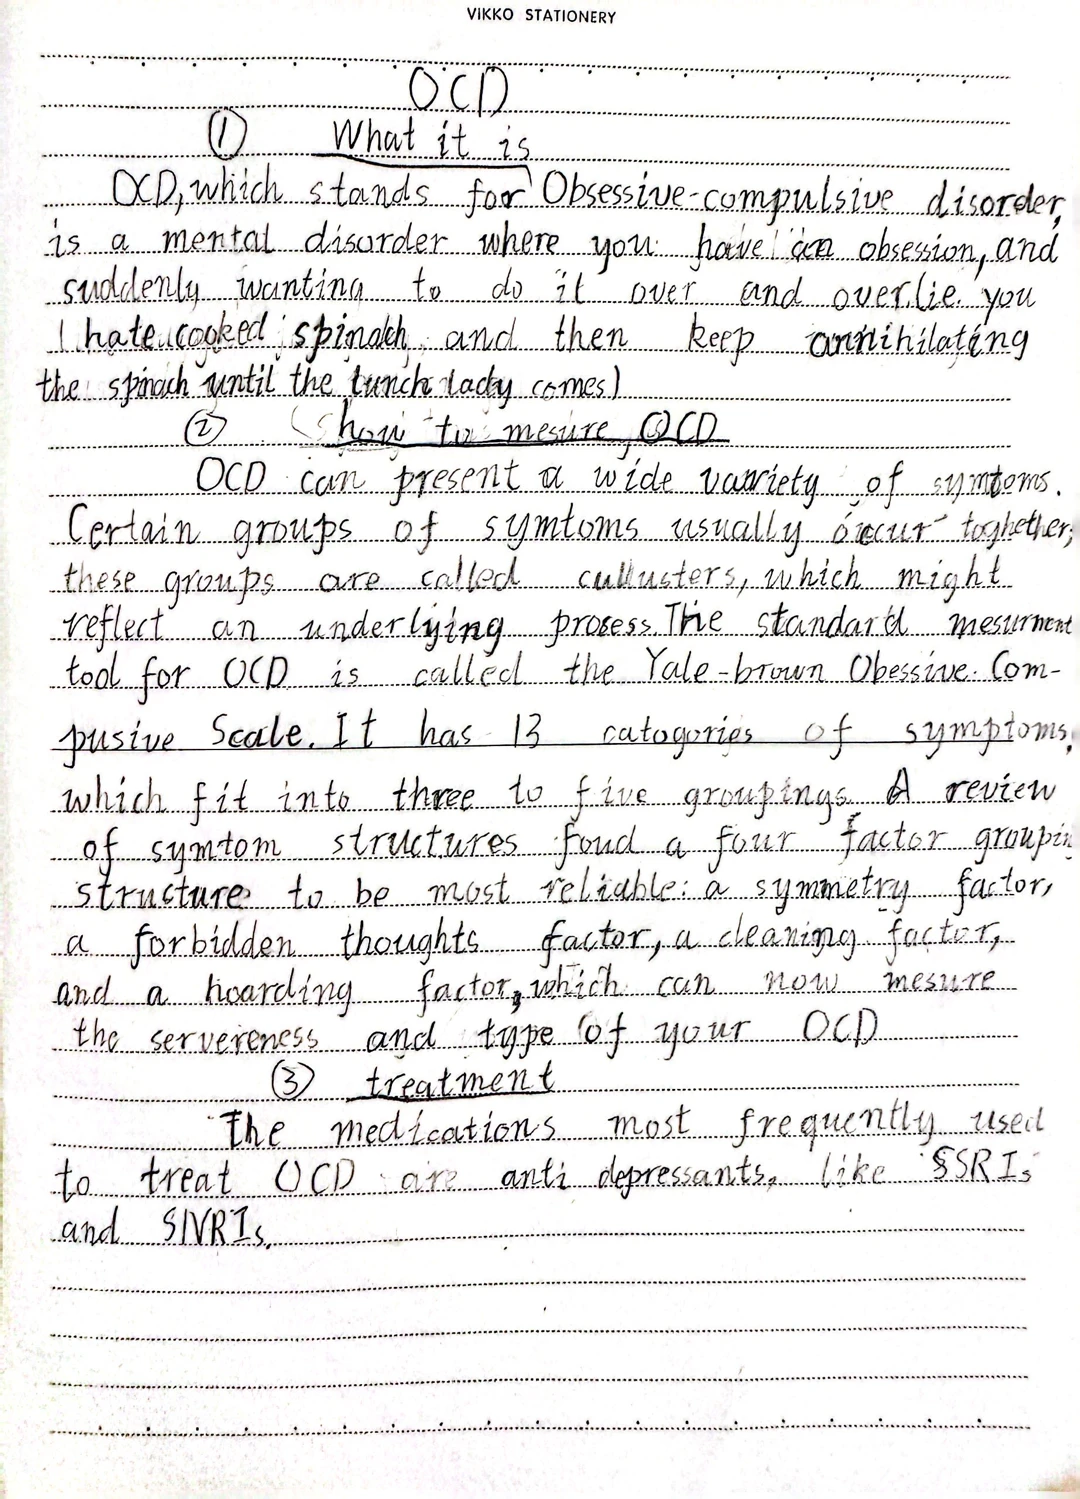 VIKKO STATIONERY
OCD
① What it is
OCD, which stands for Obsessive-compulsive disorder,
is a mental disorder where you have an obsession, and
suddenly wanting to do it over and over.(ie. you
hate cooked spinach, and then keep annihilating
the spinach until the lunch lady comes)
② how to mesure OCD
OCD can present a wide vairiety of symtoms.
Certain groups of symtoms usually occur toghether;
these groups are called cullusters, which might
reflect an underlying prosess. The standard mesurment
tool for OCD is called the Yale-brown Obessive. Com-
pusive Scale. It has 13 catogories of symptoms,
which fit into three to five groupings. A review
of symtom structures foud a four factor groupin
structure to be most reliable: a symmetry factor,
a forbidden thoughts factor, a cleaning factor,
and a hoarding factor, which can now mesure
the servereness and type of your OCD
③ treatment
The medications most frequently used
to treat OCD are anti depressants, like SSRIs
and SNRIs.